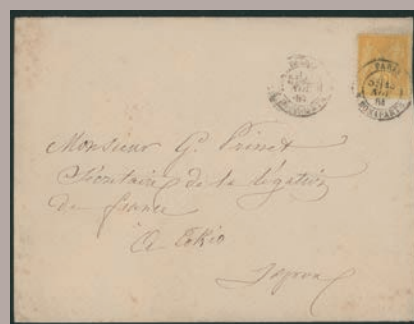 PARIS
BONAPARTE
Monsieur G. Prinet
Secrétaire de la légation
de france
à Tokio
Japon